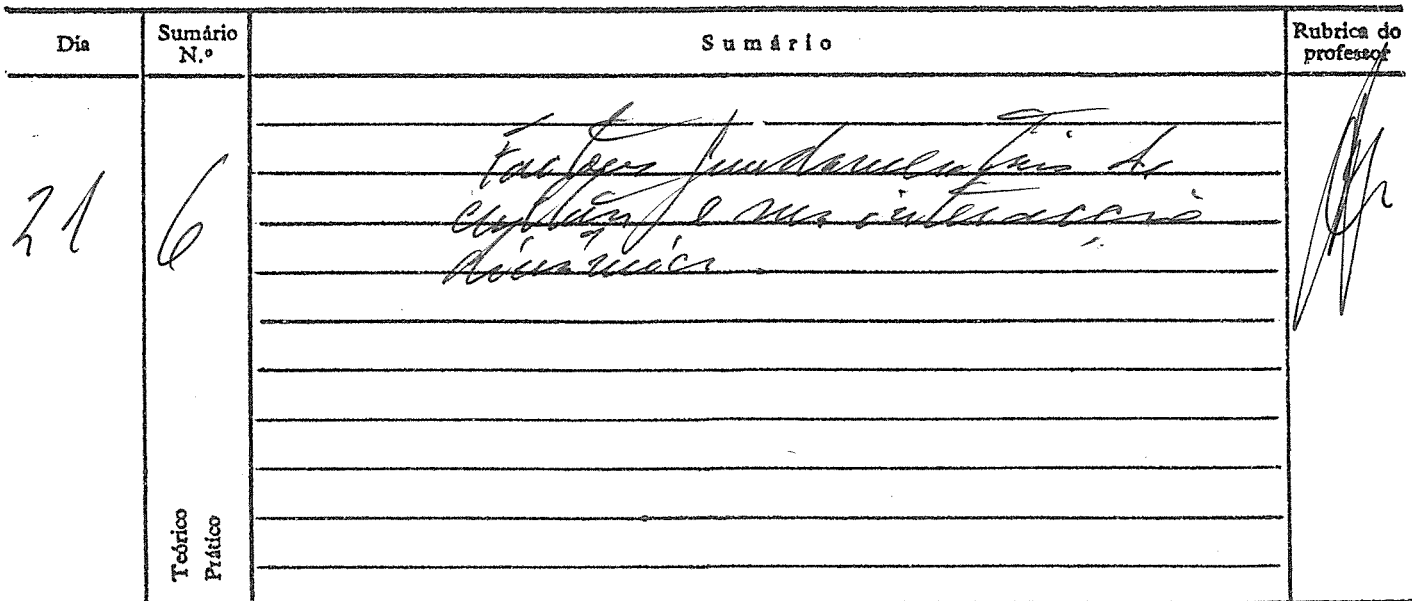 Dia
Sumário N.º
Sumário
Rubrica do professor
21
6
Factores fundamentais da
cultura e sua interacção
dinâmica.
Teórico
Prático